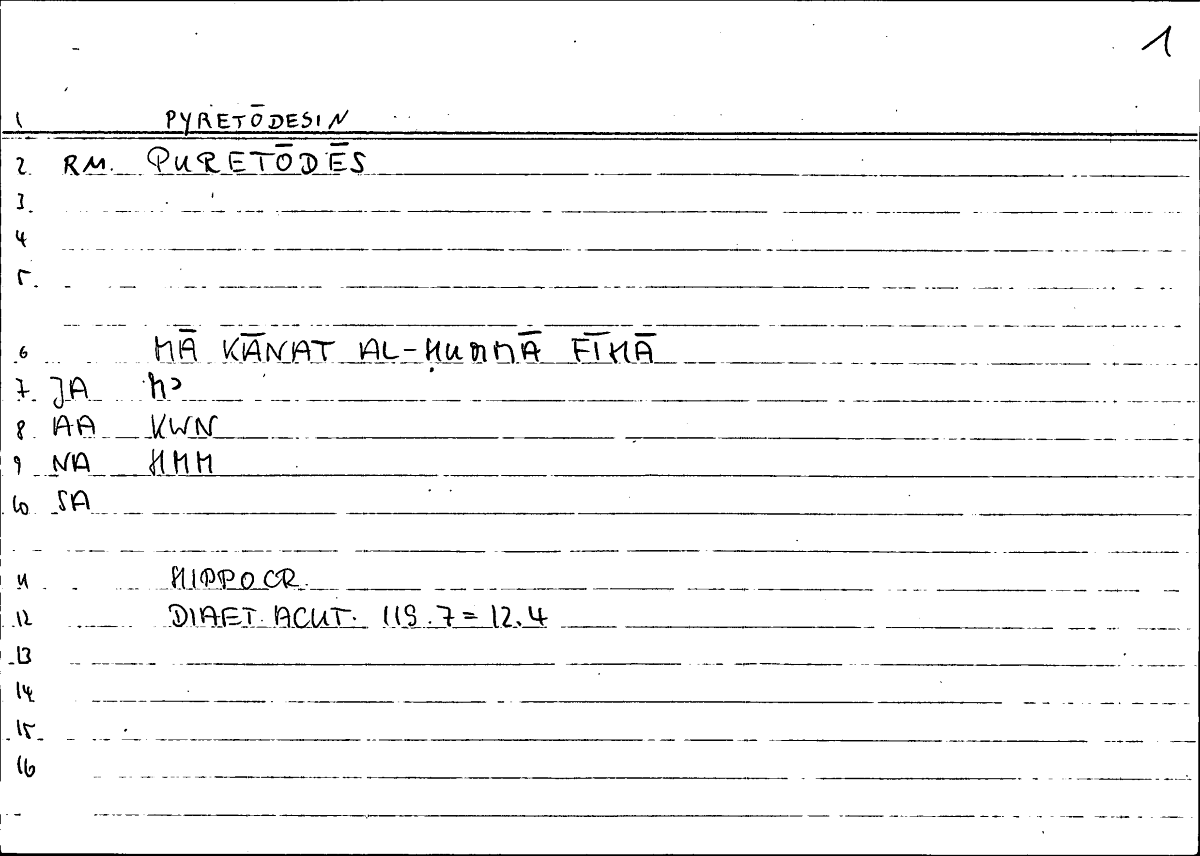 1
1 PYRETŌDESIN
2. RM. PURETŌDĒS
3.
4
5.
6 MĀ KĀNAT AL-ḤUMMĀ FĪHĀ
7. JA Mʾ
8 AA KWN
9 NA HMM
10 SA
11 HIPPOCR.
12 DIAET. ACUT. 119.7 = 12.4
13
14
15
16